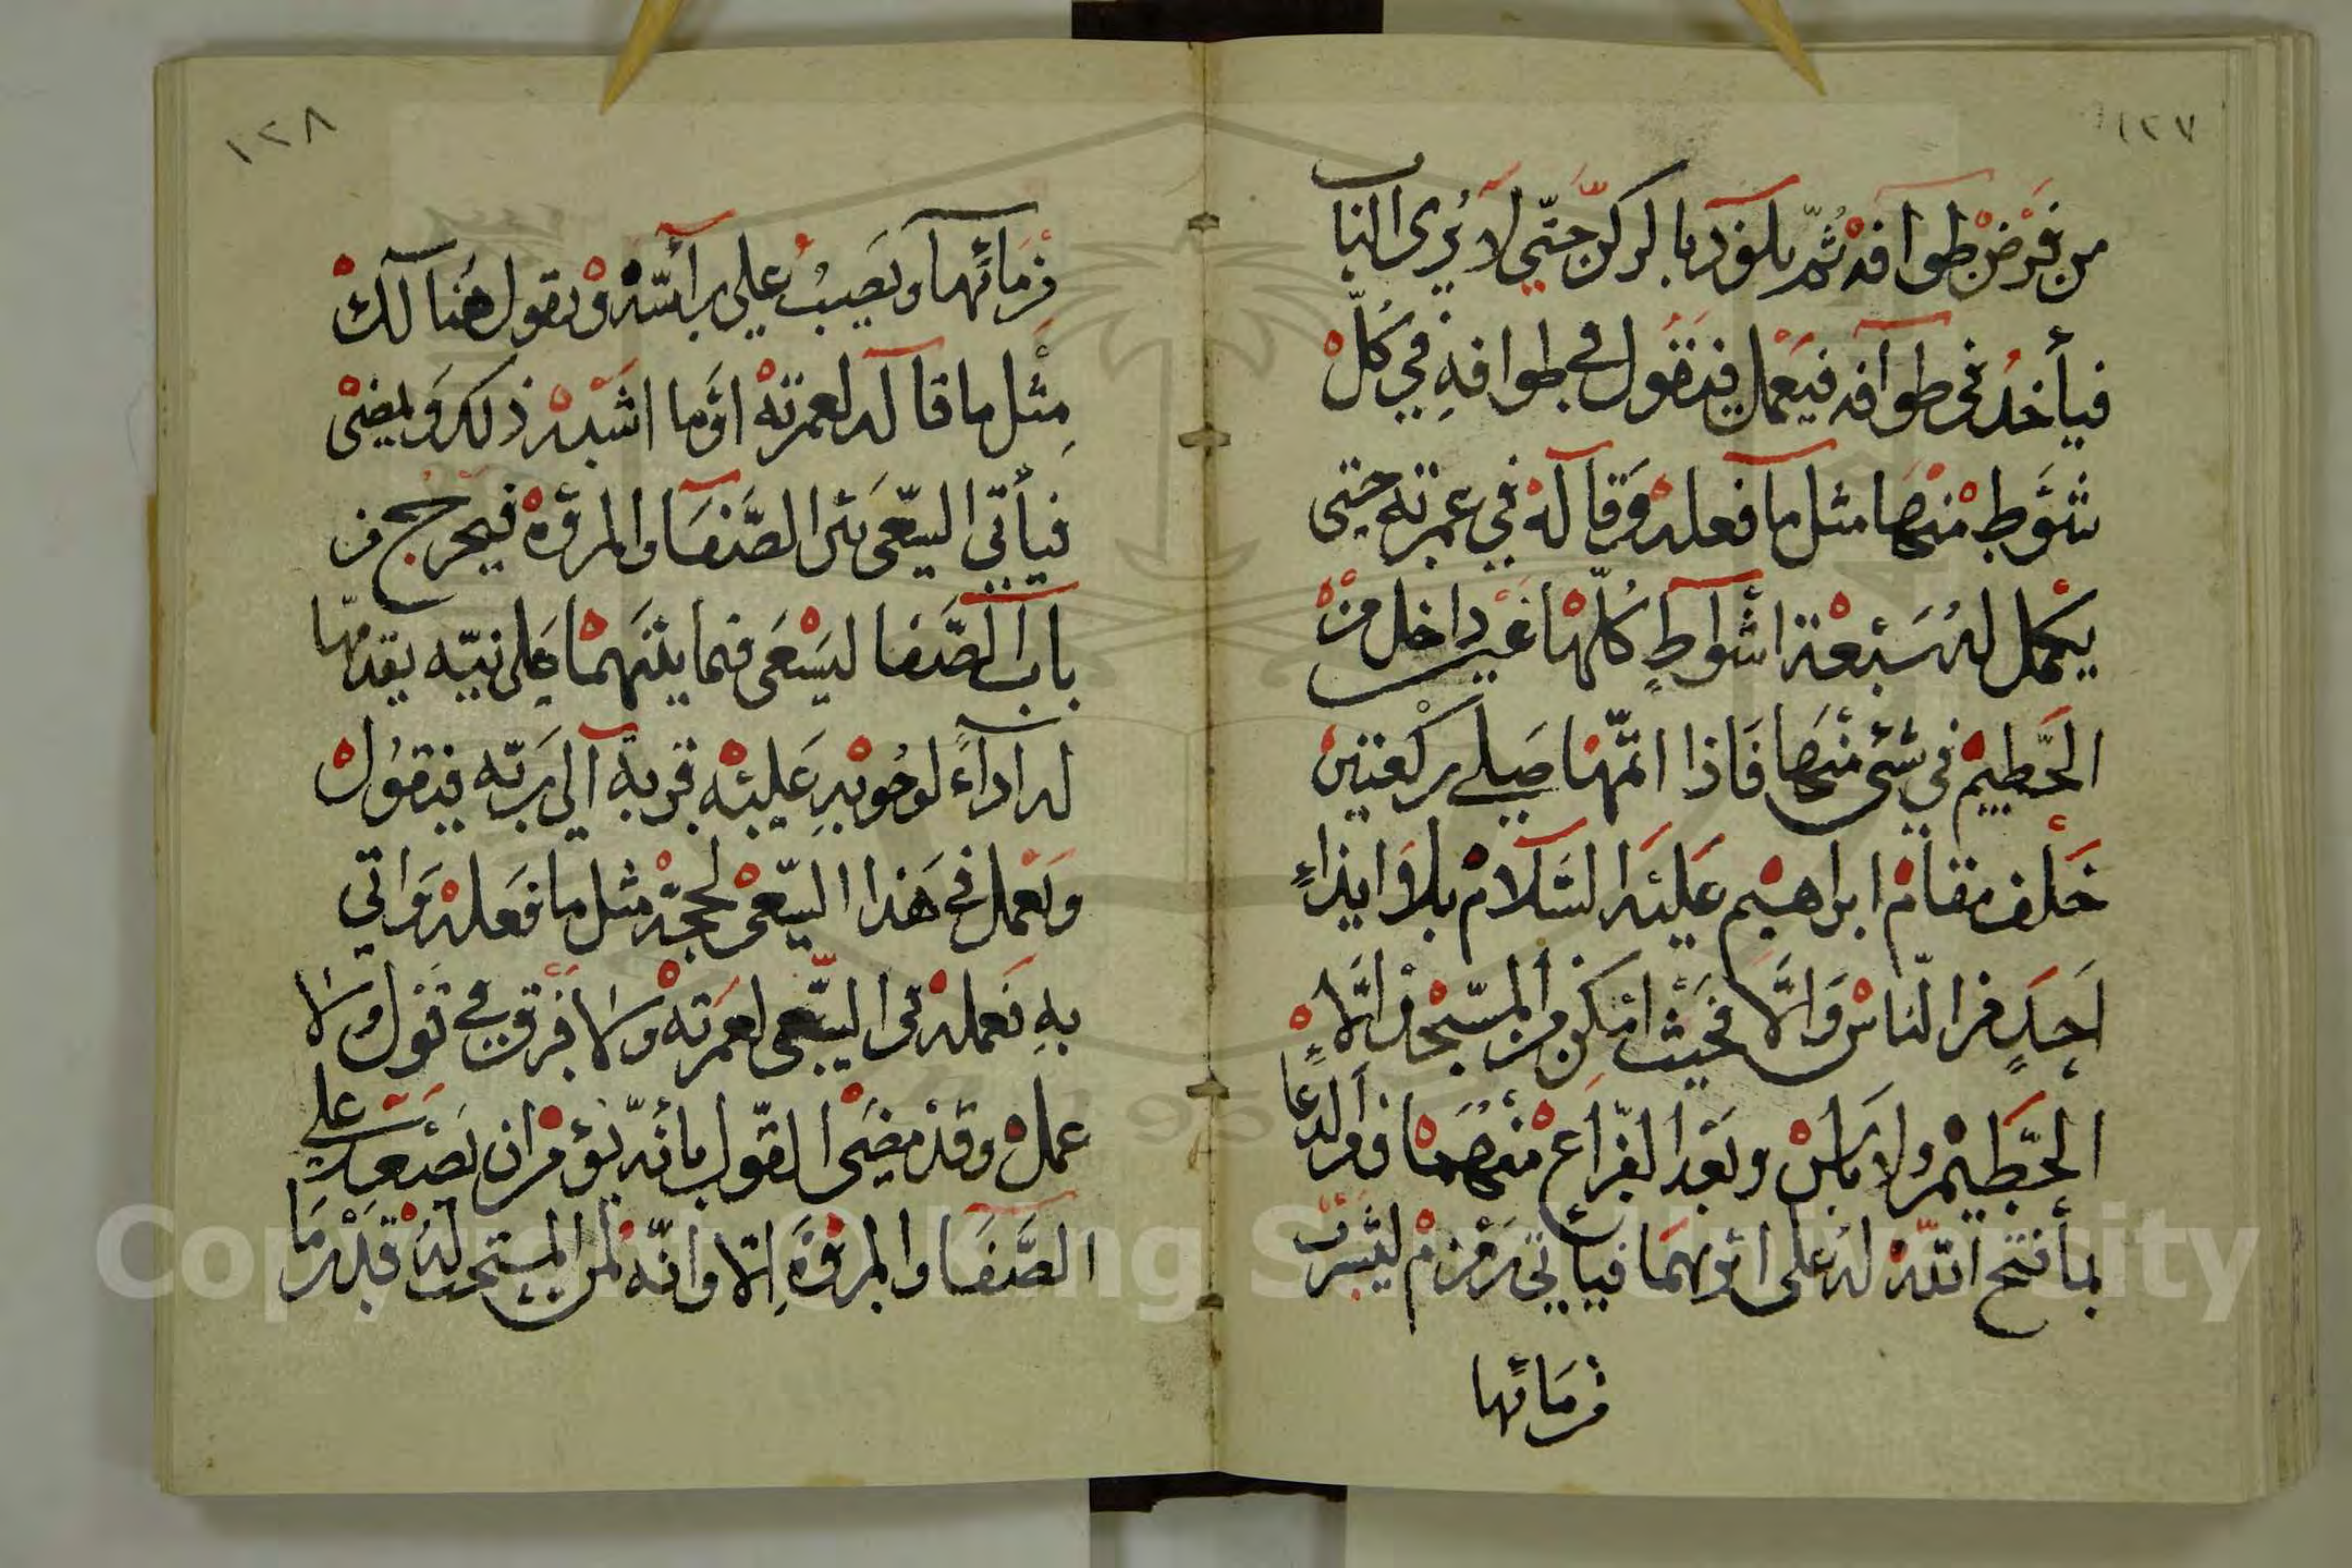 ١٢٧
من فَرْضْ طوافه ثُمّ يلوذ بالركن حَتّي لاَ يُرى الباب
فيأخذُ في طوآفه فيَعْمل فيَقُول في طوافهِ فِي كُلّ
شَوَطٍ مْنْهَا مثل مآ فعله وَقاَلهْ فِي عمرته حتى
يكْمل لهُ سَبْعْة اشْواطٍ كُلّهْا غيْر داخل مْنْ
الحَطِيمْ في شىء منْهَا فَاذا اتمّهْا صَلے ركعتين
خَلف مقامْ ابراهيْم عَليْه السَّلامْ بلا ايذاءٍ
لاَحَدٍ من النّاسْ وَالّا فحَيْث امْكن من المسْجْد الّا
الحَطِيْم ولا باسْ وبَعْد الفرَاغْ منْهُمْا ومن الدعاَ
بمأ فتح اللّهْ لهُ على اثرهِمَا فيَاتي زمزمْ ليشرَب
من مَائها
من مَائهَا ويَصبُّ على رأسهْ ويقول هْنا لكْ
مِثْل ما قاله لعمرتهْ اوْ ما اشبَهْ ذلك ويمضىْ
فيأتي السّعَى بيَن الصَّفَا والمروْهْ فيخرج من
باب الصَّفَا ليَسْعَى فيما بيْنَهمْا عَلى نيّه يقدمّها
له اداءً لوجُوبهِ عَليْهْ قربة الى رَبّه فيَقُولْ
ويَعْمل في هَذا السّعْى لحجّهْ مثل ما فَعلهْ وَاتي
بهِ نَعمله في السّعى لعمَرتهْ ولا فَرْق في قَوْل ولا
عملْ وقدْ مضَى القَوْل بأنّه يؤمْر ان يَصْعد علي
الصَّفَا والمرْوَةِ الّا وانّه لمنْ المستحَب لَهُ قَدْر مَا
١٢٨